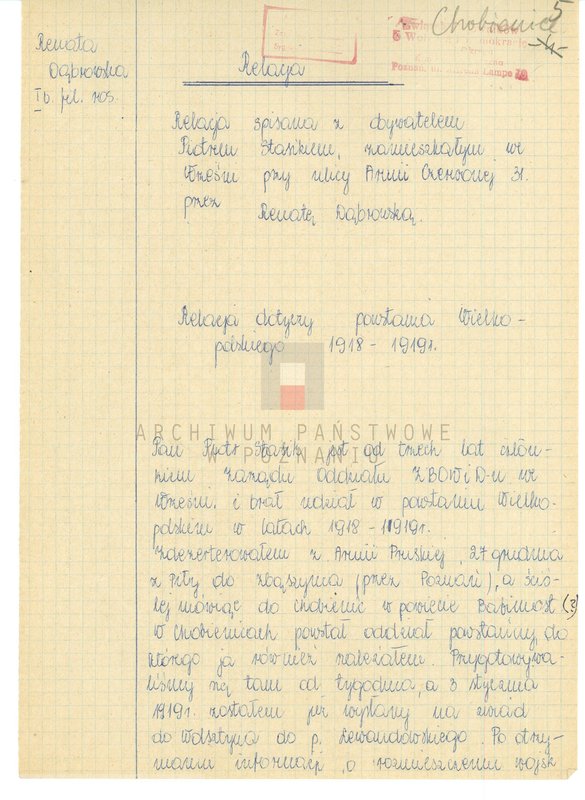 5
Chobienice
Renata
Dąbrowska
I b. fil. ros.
Relacja
Relacja spisana z obywatelem
Piotrem Stasikiem, zamieszkałym we
Wrześni przy ulicy Armii Czerwonej 31.
przez
Renatę Dąbrowską.
Relacja dotyczy powstania Wielko-
polskiego 1918 - 1919r.
ARCHIWUM PAŃSTWOWE
W POZNANIU
Pan Piotr Stasik jest od trzech lat człon-
kiem zarządu oddziału ZBOWiD-u we
Wrześni i brał udział w powstaniu Wielko-
polskim w latach 1918 - 1919r.
Zdezerterowałem z Armii Pruskiej 27 grudnia
z Piły do Zbąszynia (przez Poznań), a ściś-
lej mówiąc do Chobienic w powiecie Babimost (3)
W Chobienicach powstał oddział powstańczy, do
którego ja również należałem. Przygotowywa-
liśmy się tam od tygodnia, a 3 stycznia
1919r. zostałem już wysłany na zwiad
do Wolsztyna do p. Lewandowskiego. Po otrzy-
maniu informacji o rozmieszczeniu wojsk